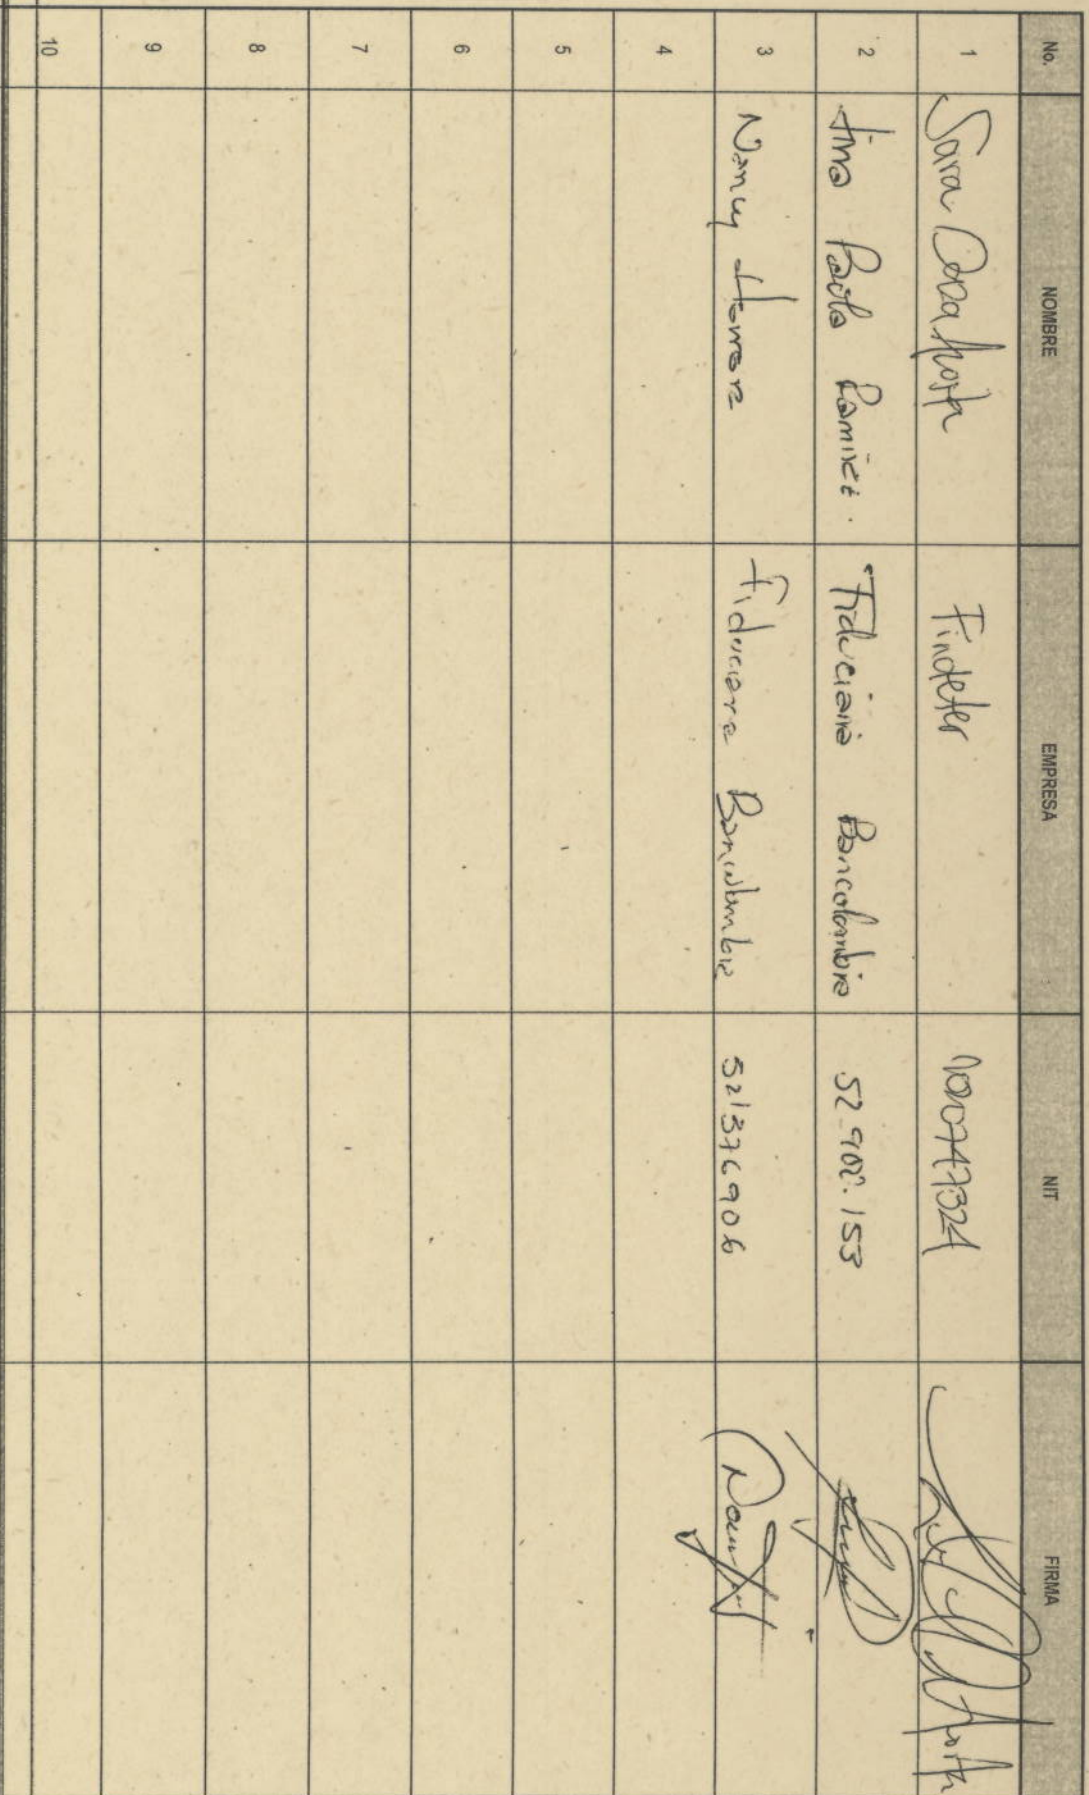 No. NOMBRE EMPRESA NIT FIRMA
1 Sara Acosta Findeter
2 Paola Ramirez. Fiduciaria Bancolombia 52.902.153
3 Nancy Herrera Fiduciaria Bancolombia 521376906
4
5
6
7
8
9
10